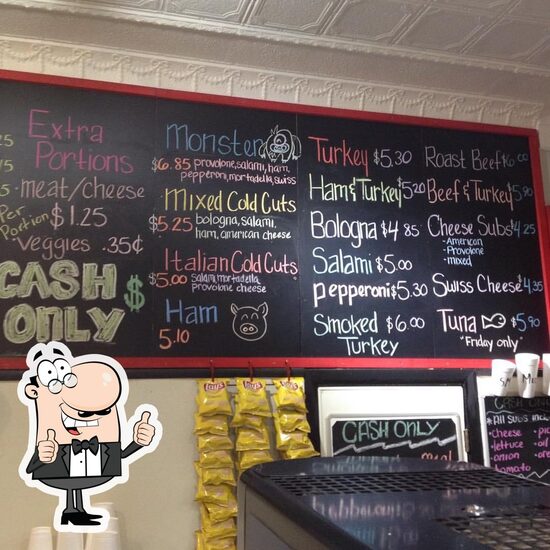 Extra
Portions
meat/cheese
Per
Portion
$1.25
veggies .35¢
CASH $
ONLY
Monster
$6.85 provolone, salami, ham,
pepperoni, mortadella, swiss
Mixed Cold Cuts
$5.25 bologna, salami,
ham, american cheese
Italian Cold Cuts
$5.00 Salami, mortadella,
provolone cheese
Ham
5.10
Turkey $5.30
Ham & Turkey $5.20
Bologna $4.85
Salami $5.00
pepperoni $5.30
Smoked $6.00
Turkey
Roast Beef $6.00
Beef & Turkey $5.90
Cheese Subs $4.25
- American
- Provolone
- mixed
Swiss Cheese $4.35
Tuna $5.90
"Friday only"
Lay's
Lay's
Lay's
CASH ONLY
S
M
CASH ONLY
*All subs incl
cheese
lettuce
onion
tomato
oil